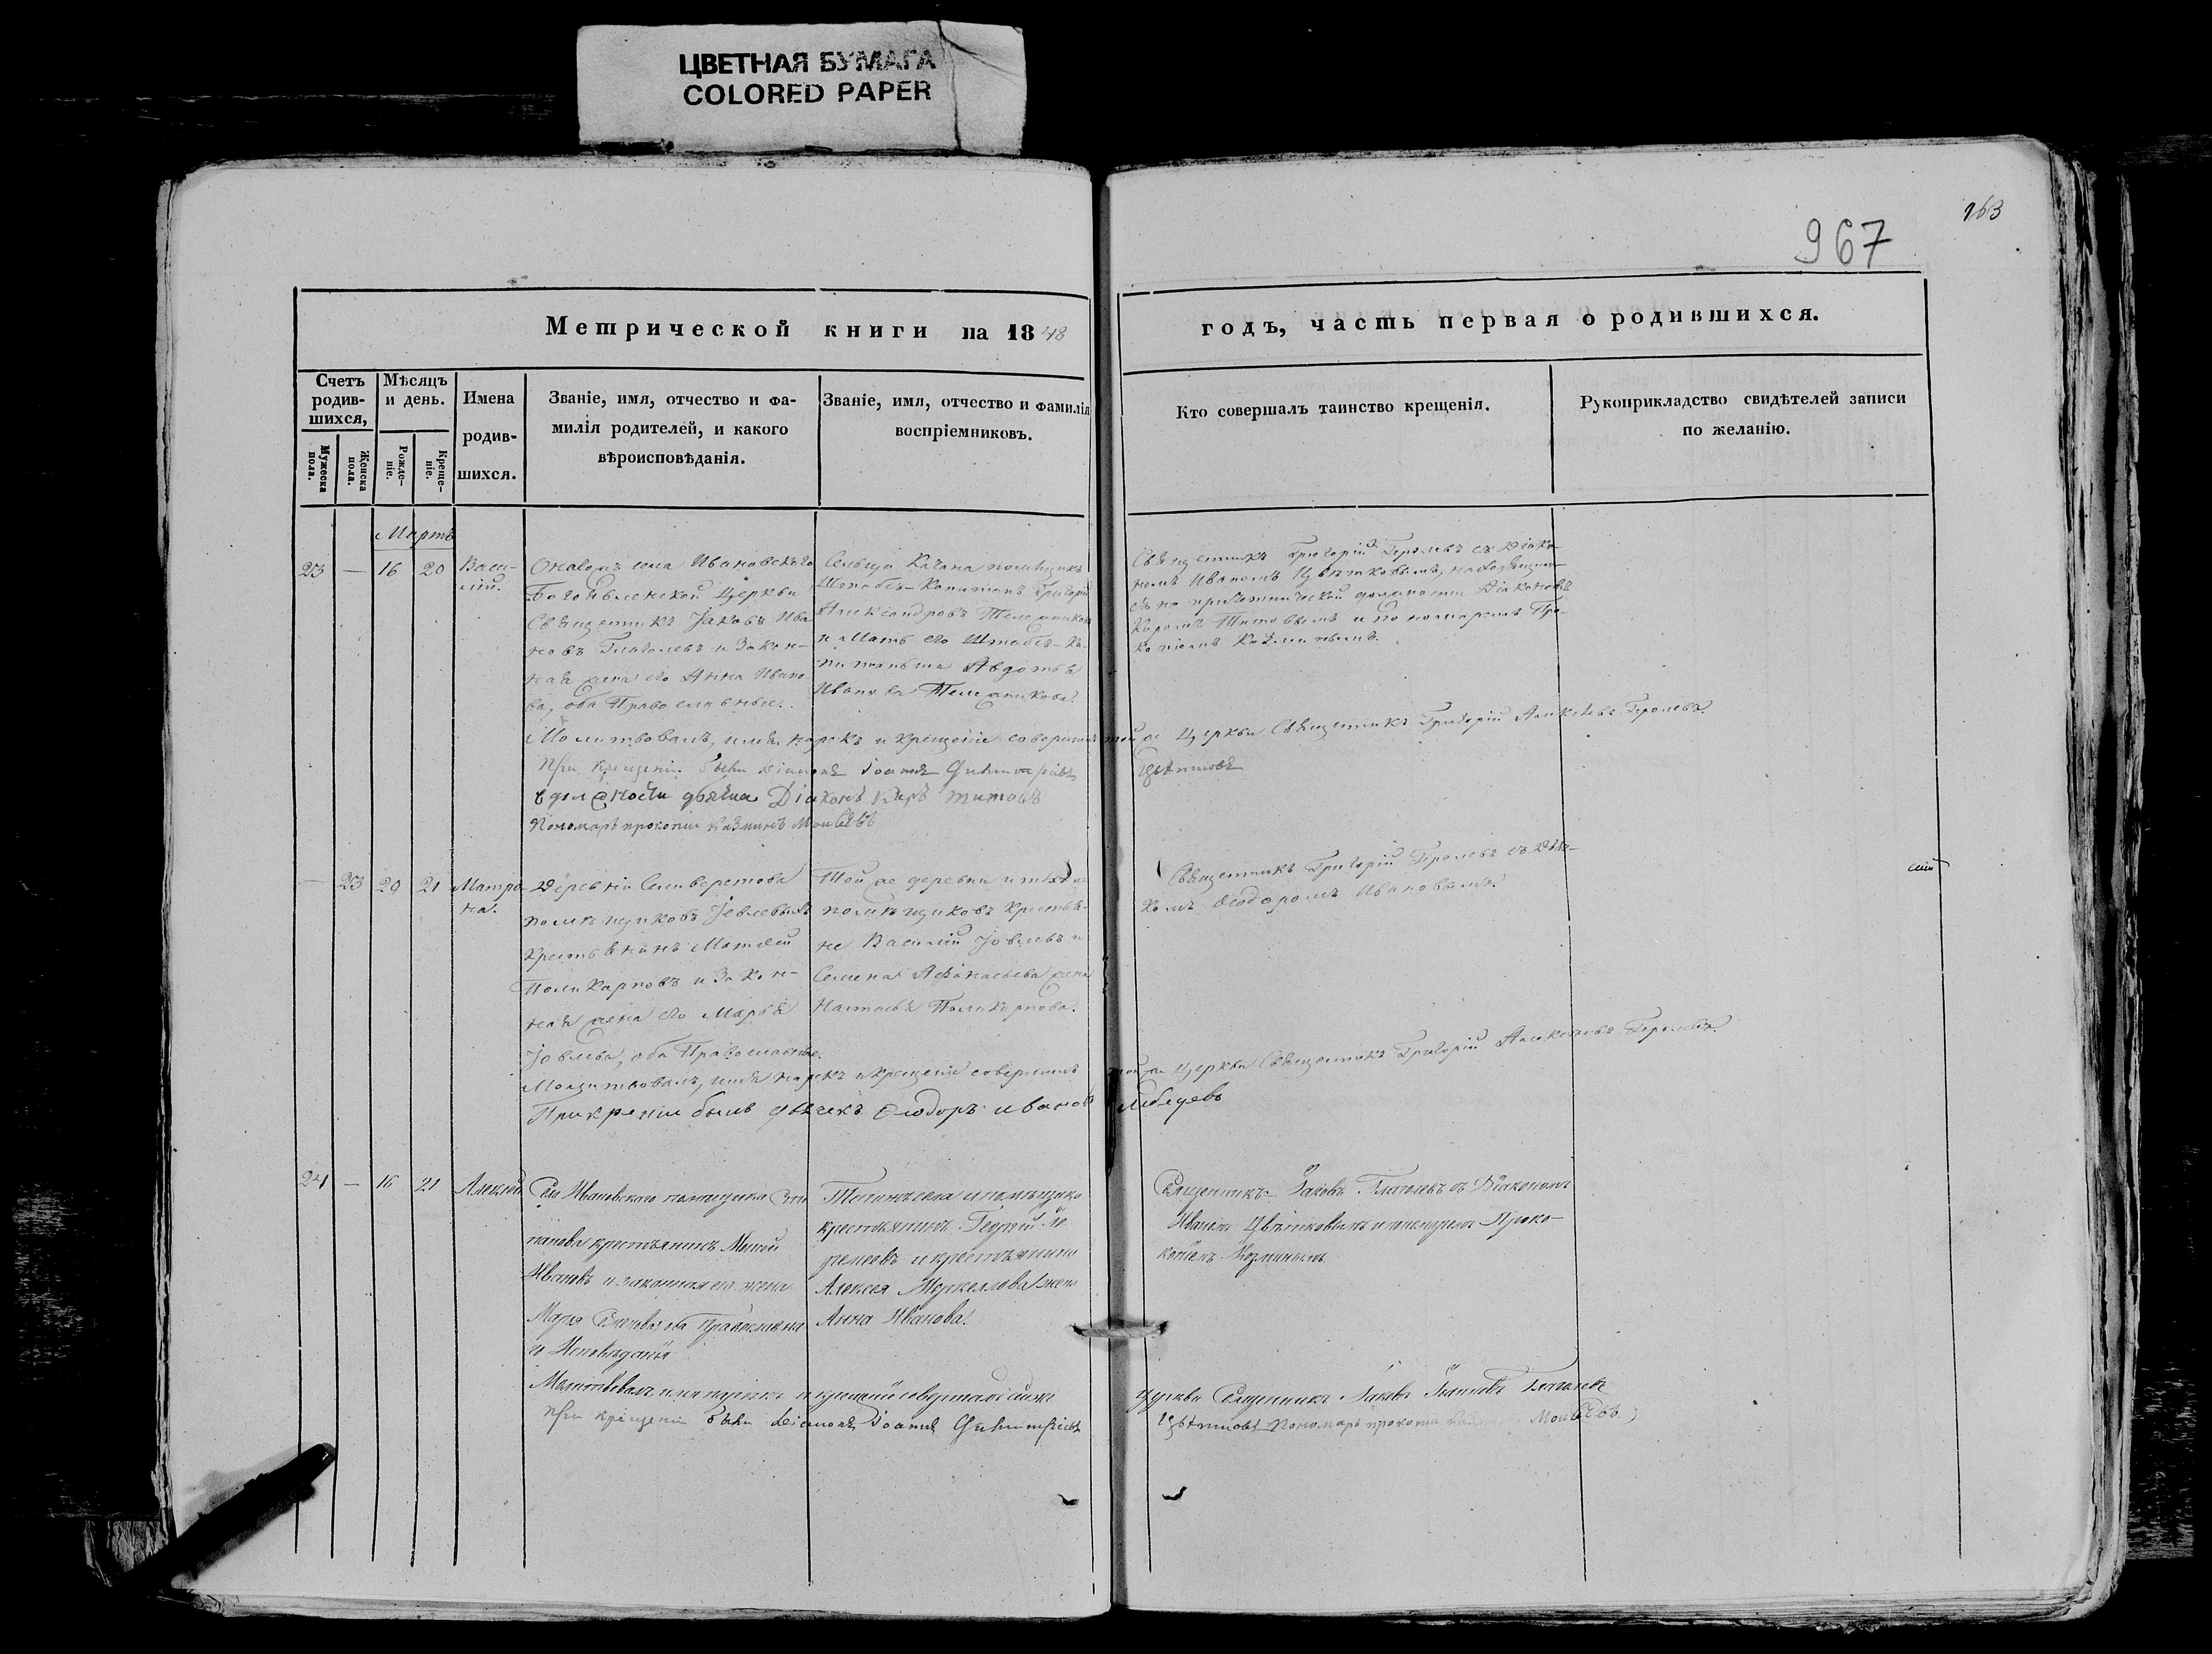 ЦВЕТНАЯ БУМАГА
COLORED PAPER
163
967
Метрической книги на 1848
годъ, часть первая о родившихся.
Счетъ родив-шихся,
Мужеска пола.
Женска пола.
Мѣсяцъ и день.
Рожде-ніе.
Креще-ніе.
Имена
родив-
шихся.
Званіе, имя, отчество и фа-
милія родителей, и какого
вѣроисповѣданія.
Званіе, имя, отчество и фамилія
воспріемниковъ.
Кто совершалъ таинство крещенія.
Рукоприкладство свидѣтелей записи
по желанію.
Мартъ
23 — 16 20
Васи-
лій.
села Ивановскаго
Богоявленской Церкви
Священникъ Іаковъ Ива
новъ Глаголевъ и Закон-
ная жена его Анна Ивано-
ва, оба Православные.
Сельца помѣщикъ
Штабсъ-Капитанъ Григорій
Александровъ
и Мать его Штабсъ-Ка-
питанша Авдотья
Иванова
Священникъ Григорій съ Діако-
номъ Иваномъ Цвѣтковымъ, находящим-
ся на причетнической должности Діакономъ
Киромъ Титовымъ и пономаремъ Про-
копіемъ Козминымъ.
Молитвовалъ, имя нарекъ и крещеніе совершилъ той же Церкви Священникъ Григорій Алексѣевъ
При крещеніи были діаконъ Іоаннъ Цвѣтковъ
в должности дьячка Діаконъ Киръ Титовъ
Пономарь прокопии Казминъ Моисѣевъ
— 23 20 21
Матро-
на.
Деревни Селиверстова
помѣщиковъ Іевлевыхъ
Крестьянинъ Матвей
Поликарповъ и Закон-
ная жена его Марья
Іовлева, оба Православные.
Той же деревни и тѣхъ же
помѣщиковъ Крестья-
не Василій Іовлевъ и
Семена Афанасьева жена
Настасья Поликарпова.
Священникъ Григорій съ Дья-
комъ Ѳеодоромъ Ивановымъ.
Молитвовалъ, имя нарекъ и крещеніе совершилъ той же Церкви Священникъ Григорій Алексѣевъ
При крещении былъ дьячекъ Ѳеодоръ Ивановъ Лебедевъ
24 — 16 21
Алексій
Села Ивановскаго помѣщика
панова крестьянинъ
Ивановъ и законная его жена
Марья оба Православна
го Исповѣданія
села и помѣщика
крестьянинъ Георгій
и крестьянина
Алексея жена
Анна Иванова.
Священникъ Іаковъ Глаголевъ съ Діакономъ
Иваномъ Цвѣтковымъ и пономаремъ Проко-
піемъ Козминымъ
Молитвовалъ имя нарекъ и крещеніе совершалъ сиже церкви Священникъ Іаковъ Ивановъ Глаголевъ
При крещеніи были діаконъ Іоаннъ Цвѣтковъ Пономарь прокопии Моисѣевъ